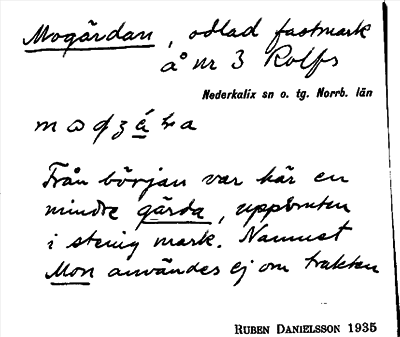 Mogärdan, odlad fastmark
å nr 3 Rolfs
Nederkalix sn o. tg. Norrb. län
Från början var här en
mindre gärda, uppbruten
i stenig mark. Namnet
Mon användes ej om trakten
RUBEN DANIELSSON 1935